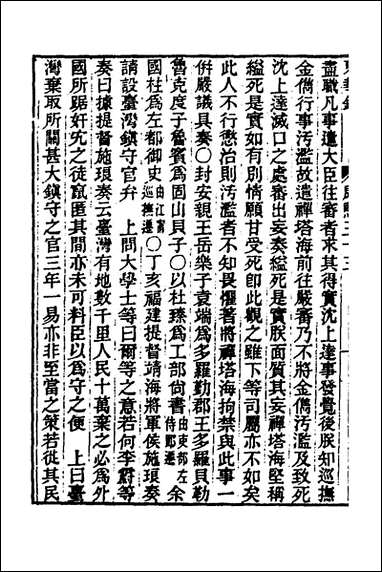 盡職凡事遣大臣往審者求其得實沈上達事發覺後朕知巡撫
金儁行事汚濫故遣禪塔海前往嚴審乃不將金儁汚濫及致死
沈上達滅口之處審出妄奏縊死是實朕面質其妄禪塔海堅稱
縊死是實如有別情願甘受死卽此觀之雖下等司屬亦不如矣
此人不行懲治則汚濫者不知畏懼著將禪塔海拘禁與此事一
倂嚴議具奏〇封安親王岳樂子袁端爲多羅勤郡王多羅貝勒
魯克度子魯賓爲固山貝子〇以杜臻爲工部尙書由吏部左侍郎遷余
國柱爲左都御史由江寧巡撫遷〇丁亥福建提督靖海將軍侯施琅奏
請設臺灣鎮守官弁 上問大學士等曰爾等之意若何李霨等
奏曰據提督施琅奏云臺灣有地數千里人民十萬棄之必爲外
國所踞奸宄之徒竄匿其間亦未可料臣以爲守之便 上曰臺
灣棄取所關甚大鎮守之官三年一易亦非至當之策若徙其民